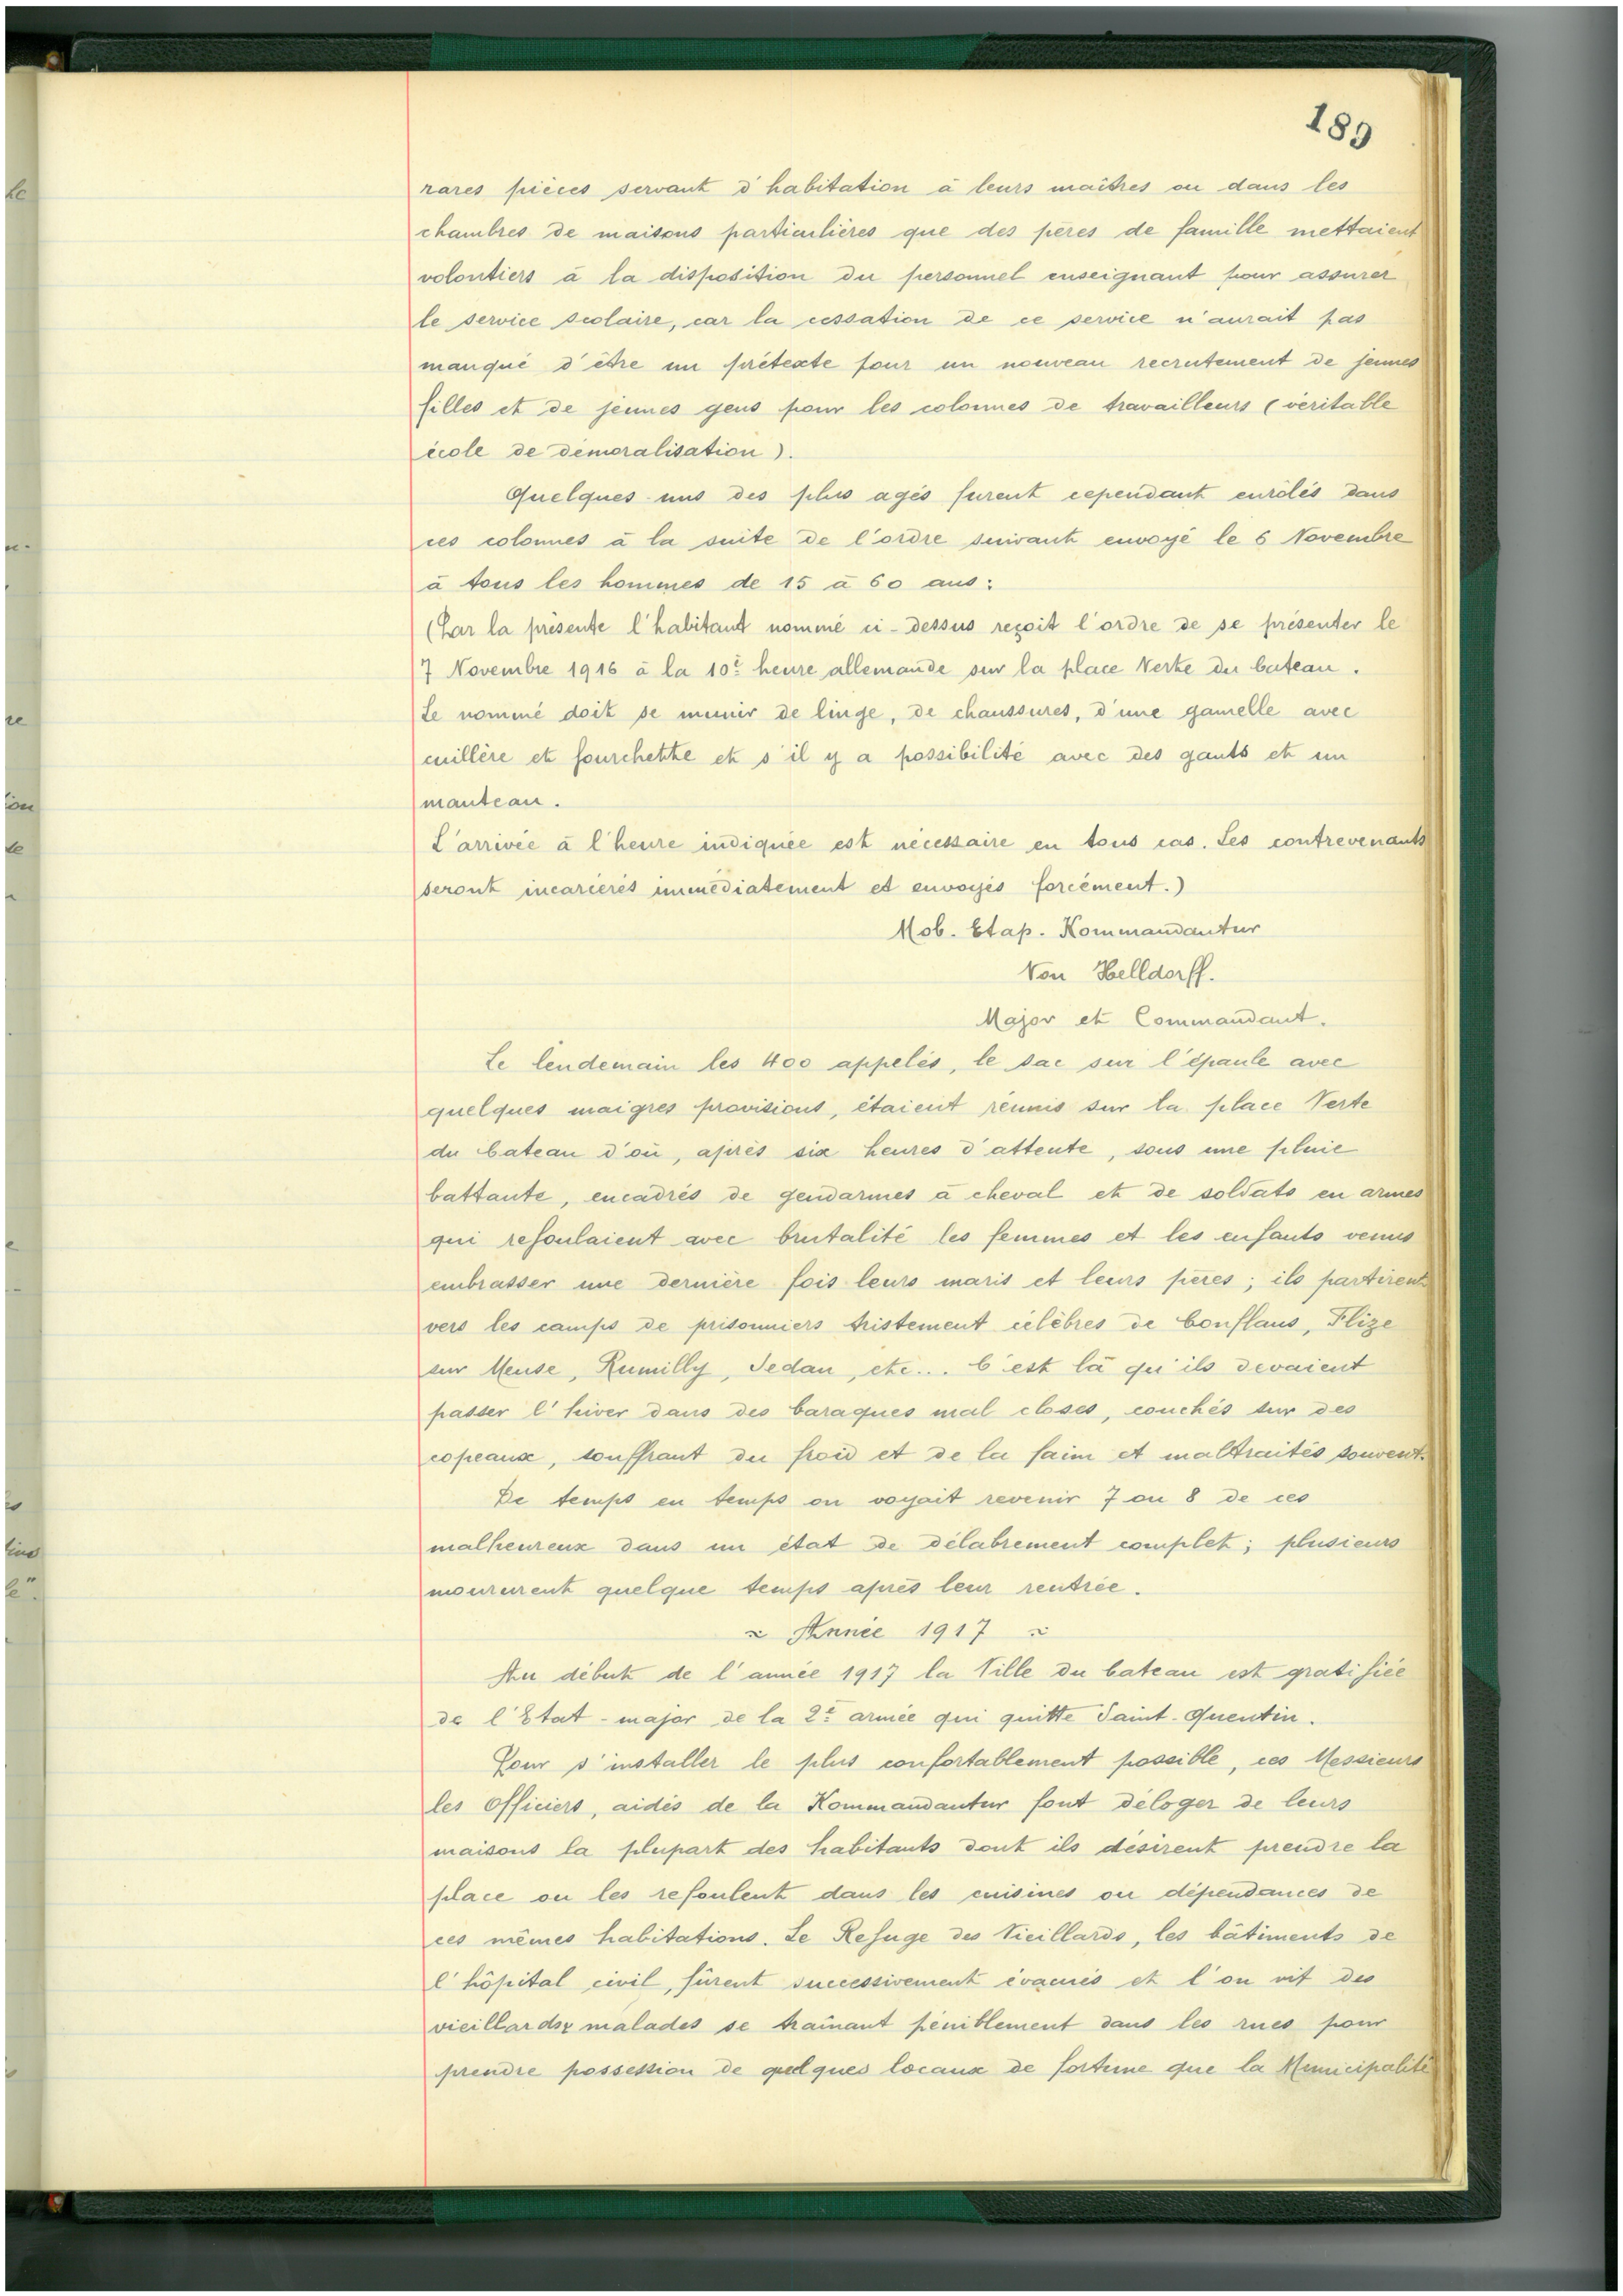 189
rares pièces servant d'habitation à leurs maîtres ou dans les
chambres de maisons particulières que des pères de famille mettaient
volontiers à la disposition du personnel enseignant pour assurer
le service scolaire, car la cessation de ce service n'aurait pas
manqué d'être un prétexte pour un nouveau recrutement de jeunes
filles et de jeunes gens pour les colonnes de travailleurs (véritable
école de démoralisation).
Quelques-uns des plus agés furent cependant enrôlés dans
ces colonnes à la suite de l'ordre suivant envoyé le 6 Novembre
à tous les hommes de 15 à 60 ans:
(Par la présente l'habitant nommé ci-dessus reçoit l'ordre de se présenter le
7 Novembre 1916 à la 10e heure allemande sur la place Verte du bateau.
Le nommé doit se munir de linge, de chaussures, d'une gamelle avec
cuillère et fourchette et s'il y a possibilité avec des gants et un
manteau.
L'arrivée à l'heure indiquée est nécessaire en tous cas. Les contrevenants
seront incarcérés immédiatement et envoyés forcément.)
Mob. Etap. Kommandantur
Von Helldorff.
Major et Commandant.
Le lendemain les 400 appelés, le sac sur l'épaule avec
quelques maigres provisions, étaient réunis sur la place Verte
du Cateau d'où, après six heures d'attente, sous une pluie
battante, encadrés de gendarmes à cheval et de soldats en armes
qui refoulaient avec brutalité les femmes et les enfants venus
embrasser une dernière fois leurs maris et leurs pères; ils partirent
vers les camps de prisonniers tristement célèbres de Conflans, Flize
sur Meuse, Rumilly, Sedan, etc... C'est là qu'ils devaient
passer l'hiver dans des baraques mal closes, couchés sur des
copeaux, souffrant du froid et de la faim et maltraités souvent.
De temps en temps on voyait revenir 7 ou 8 de ces
malheureux dans un état de délabrement complet; plusieurs
moururent quelque temps après leur rentrée.
Année 1917
Au début de l'année 1917 la Ville du Cateau est gratifiée
de l'Etat-major de la 2e armée qui quitte Saint-Quentin.
Pour s'installer le plus confortablement possible, ces Messieurs
les Officiers, aidés de la Kommandantur font déloger de leurs
maisons la plupart des habitants dont ils désirent prendre la
place ou les refoulent dans les cuisines ou dépendances de
ces mêmes habitations. Le Refuge des Vieillards, les bâtiments de
l'hôpital civil, fûrent successivement évacués et l'on vit des
vieillards malades se traînant péniblement dans les rues pour
prendre possession de quelques locaux de fortune que la Municipalité